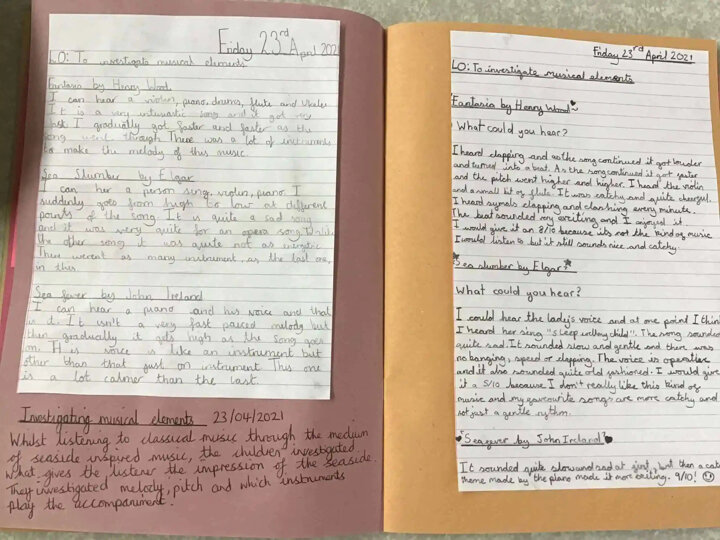 Friday 23rd April 2021
LO: To investigate musical elements
Fantasia by Henry Wood
I can hear a violin, piano, drums, flute and
It is a very song and it got very
fast. I gradually got faster and faster as the
song went through. There was a lot of instruments
to make the melody of this music.
Sea Slumber by Elgar
I can her a person sing, violin, piano. I
suddenly goes from high to low at different
points of the song. It is quite a sad song
and it was very quite for an opera song.
the other song it was quite not as energetic
There werent as many instrument, as the last one,
in this.
Sea fever by John Ireland
I can hear a piano and his voice and that
is it. It isn't a very fast paced melody but
then gradually it gets high as the song goes
on. H is voice is like an instrument but
other than that just on instrument This one
is a lot calmer than the last.
Investigating musical elements 23/04/2021
Whilst listening to classical music through the medium
of seaside inspired music, the children investigated
what gives the listener the impression of the seaside.
They investigated melody, pitch and which instruments
play the accompaniment.
Friday 23rd April 2021
LO: To investigate musical elements
Fantasia by Henry Wood
What could you hear?
I heard clapping and as the song continued it got louder
and turned into a beat. As the song continued it got faster
and the pitch went higher and higher. I heard the violin
and a small bit of flute. It was catchy and quite cheerful.
I heard symals clapping and clashing every minute.
The beat sounded very exciting and I enjoyed it.
I would give it an 8/10 because its not the kind of music
I would listen to but it still sounds nice and catchy.
Sea slumber by Elgar
What could you hear?
I could hear the lady's voice and at one point I think
I heard her sing "sleep child". The song sounded
quite sad. It sounded slow and gentle and there was
no banging, speed or clapping. The voice is operatic
and it also sounded quite old fashioned. I would give
it a 5/10 because I don't really like this kind of
music and my favourite songs are more catchy and
not just a gentle rythm.
Sea fever by John Ireland
It sounded quite slow and sad at first, but then a
theme made by the piano made it more exiting. 9/10!